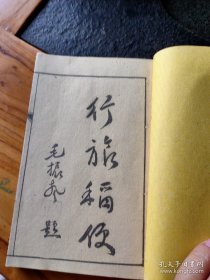 行旅稱便
毛振題
孔夫子旧书网